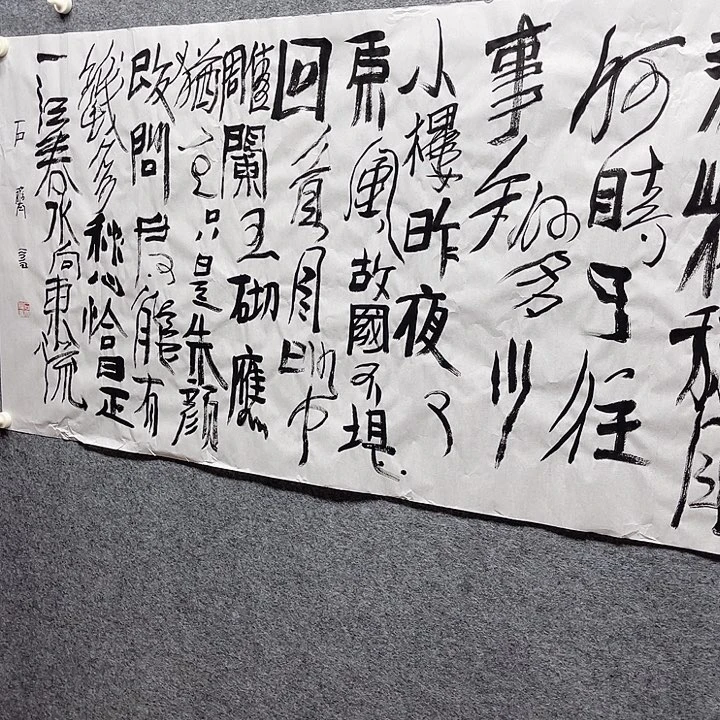 春花秋月
何時了往
事知多少
小樓昨夜又
東風故國不堪
回首月明中
雕闌玉砌應
猶在只是朱顏
改問君能有
幾多愁恰是
一江春水向東流